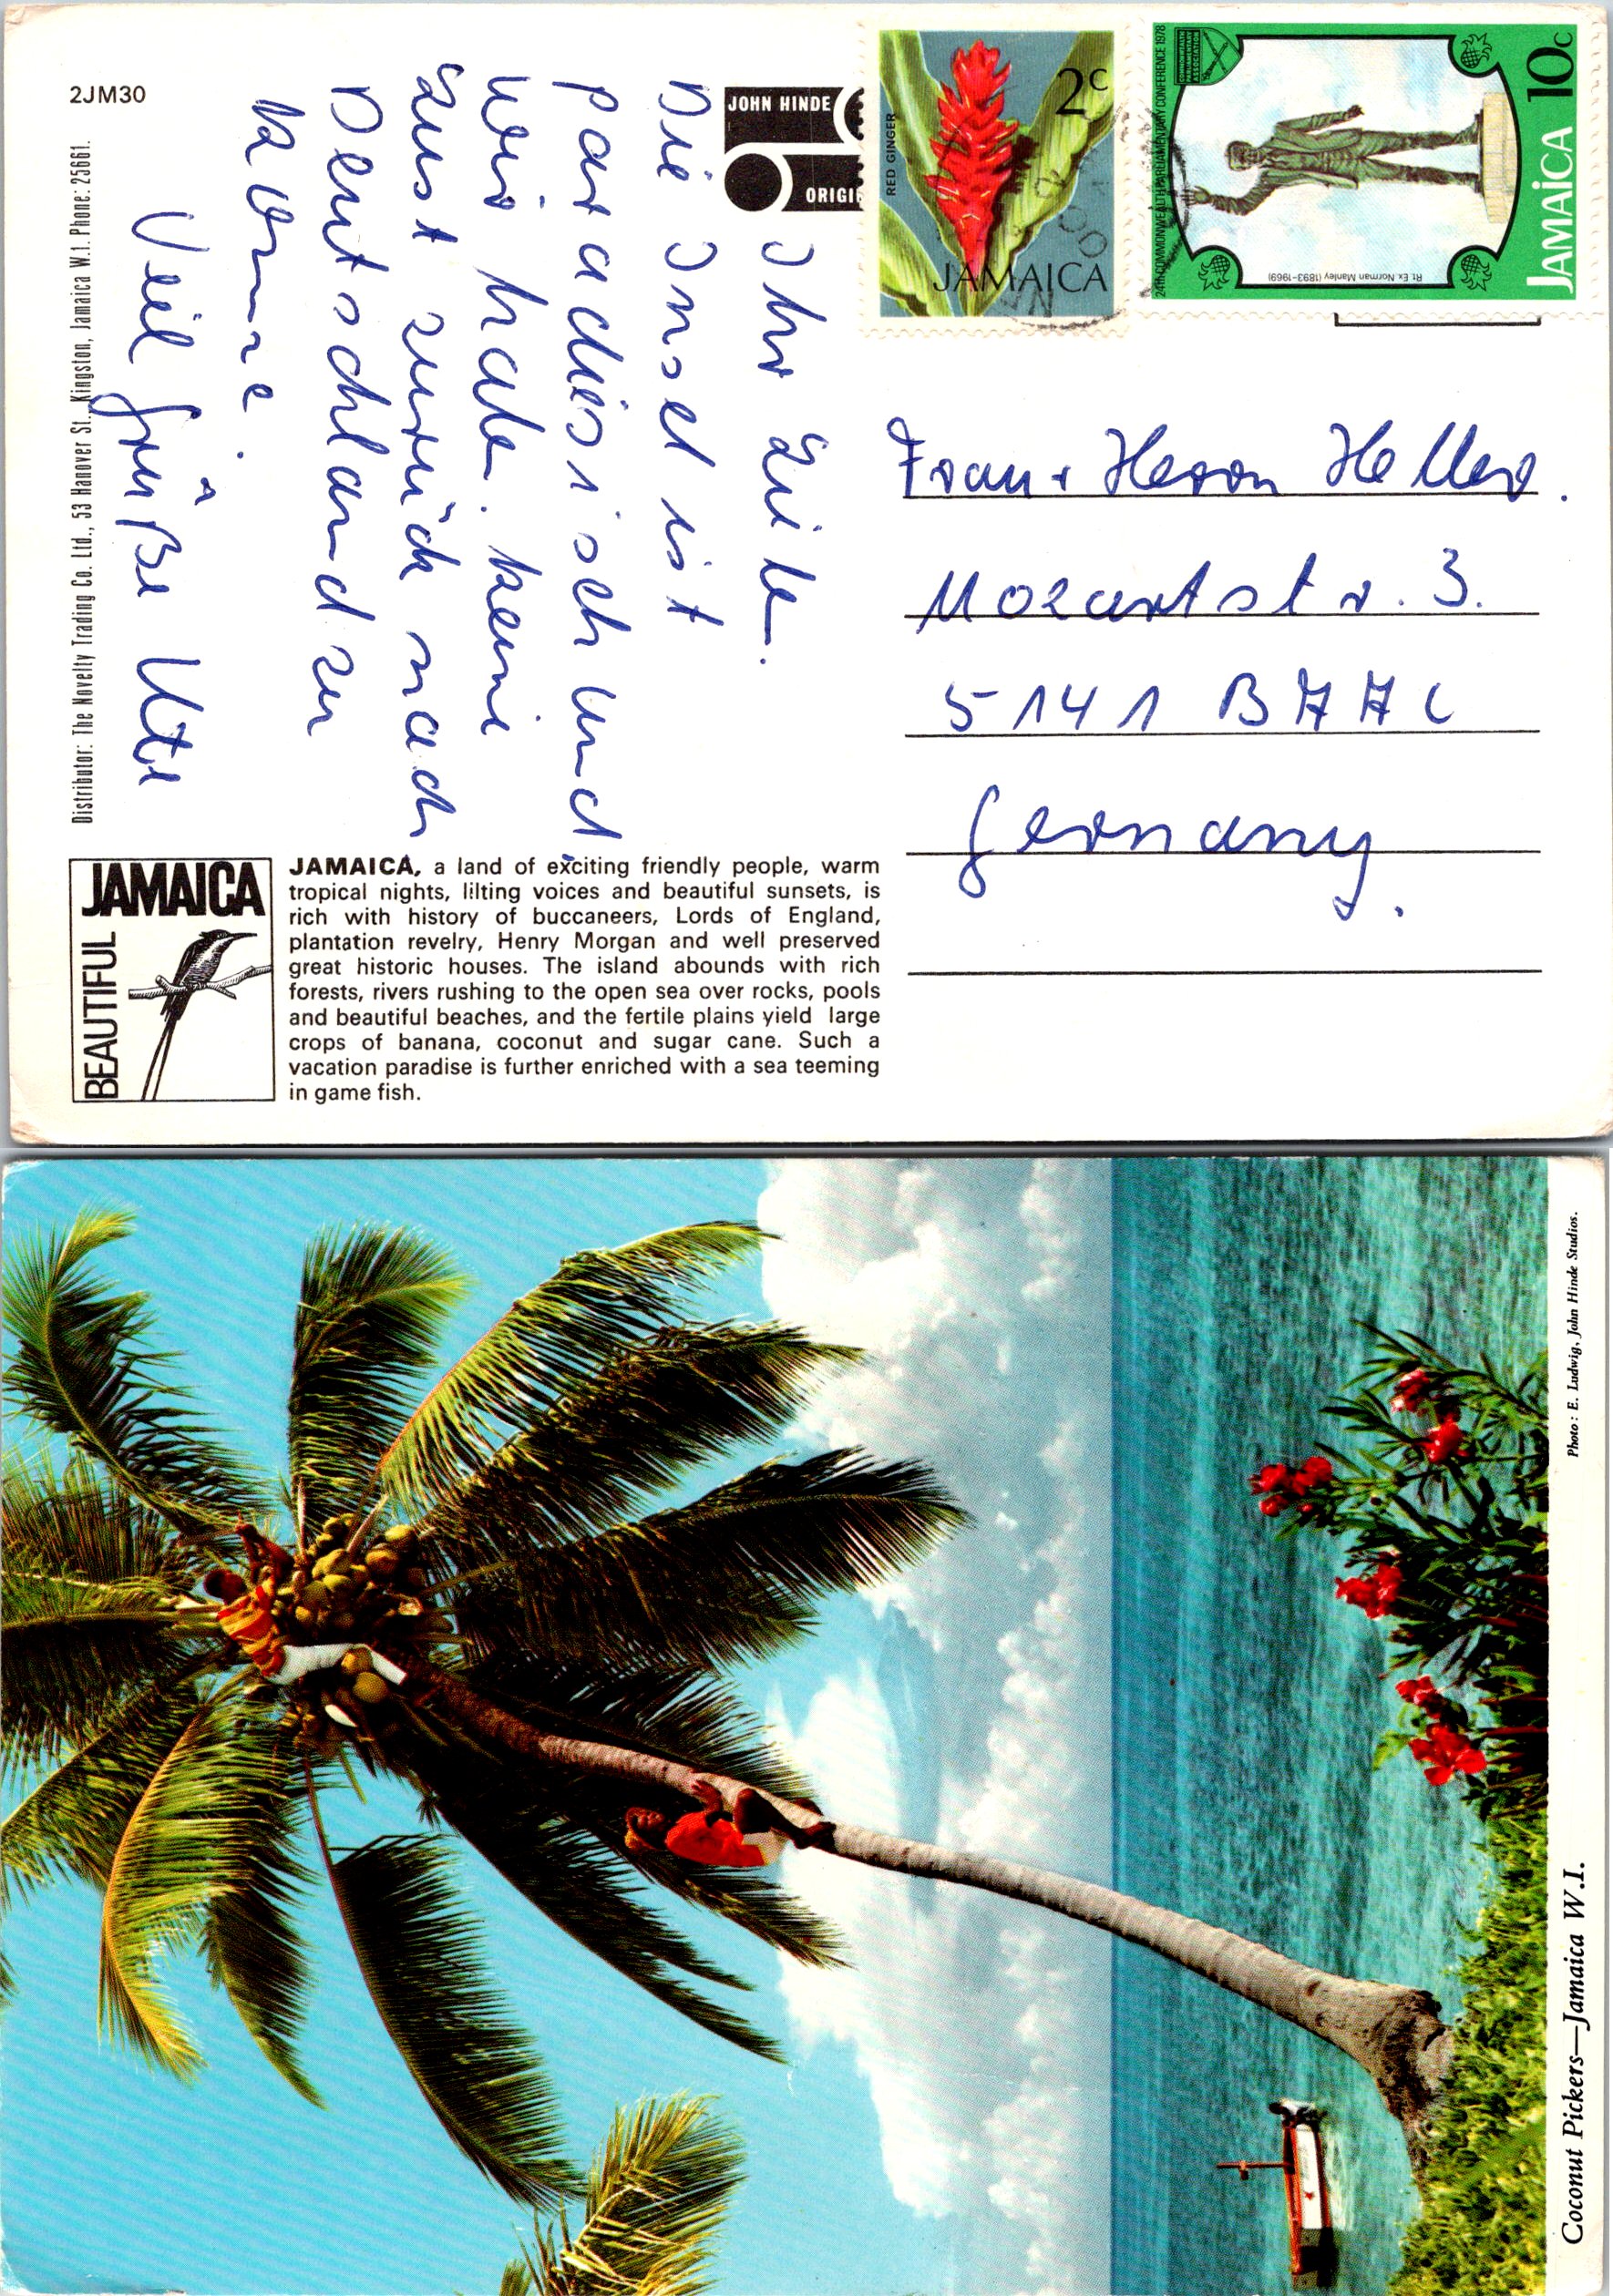 2JM30
Distributor: The Novelty Trading Co. Ltd., 53 Hanover St., Kingston, Jamaica W.I. Phone: 25661.
JOHN HINDE
ORIGI
2c
RED GINGER
JAMAICA
24TH COMMONWEALTH PARLIAMENTARY CONFERENCE 1978
COMMONWEALTH PARLIAMENTARY ASSOCIATION
Rt. Ex. Norman Manley (1893-1969)
JAMAICA 10c
Ihr Lieben.
Die Insel ist
paradiesisch und
wir haben keine
Lust zurück nach
Deutschland zu
kommen.
Viel Grüße Ute
Frau + Herrn Heller.
Mozartstr. 3.
5141 BAAL
Germany.
BEAUTIFUL JAMAICA
JAMAICA, a land of exciting friendly people, warm
tropical nights, lilting voices and beautiful sunsets, is
rich with history of buccaneers, Lords of England,
plantation revelry, Henry Morgan and well preserved
great historic houses. The island abounds with rich
forests, rivers rushing to the open sea over rocks, pools
and beautiful beaches, and the fertile plains yield large
crops of banana, coconut and sugar cane. Such a
vacation paradise is further enriched with a sea teeming
in game fish.
Coconut Pickers—Jamaica W.I.
Photo: E. Ludwig, John Hinde Studios.